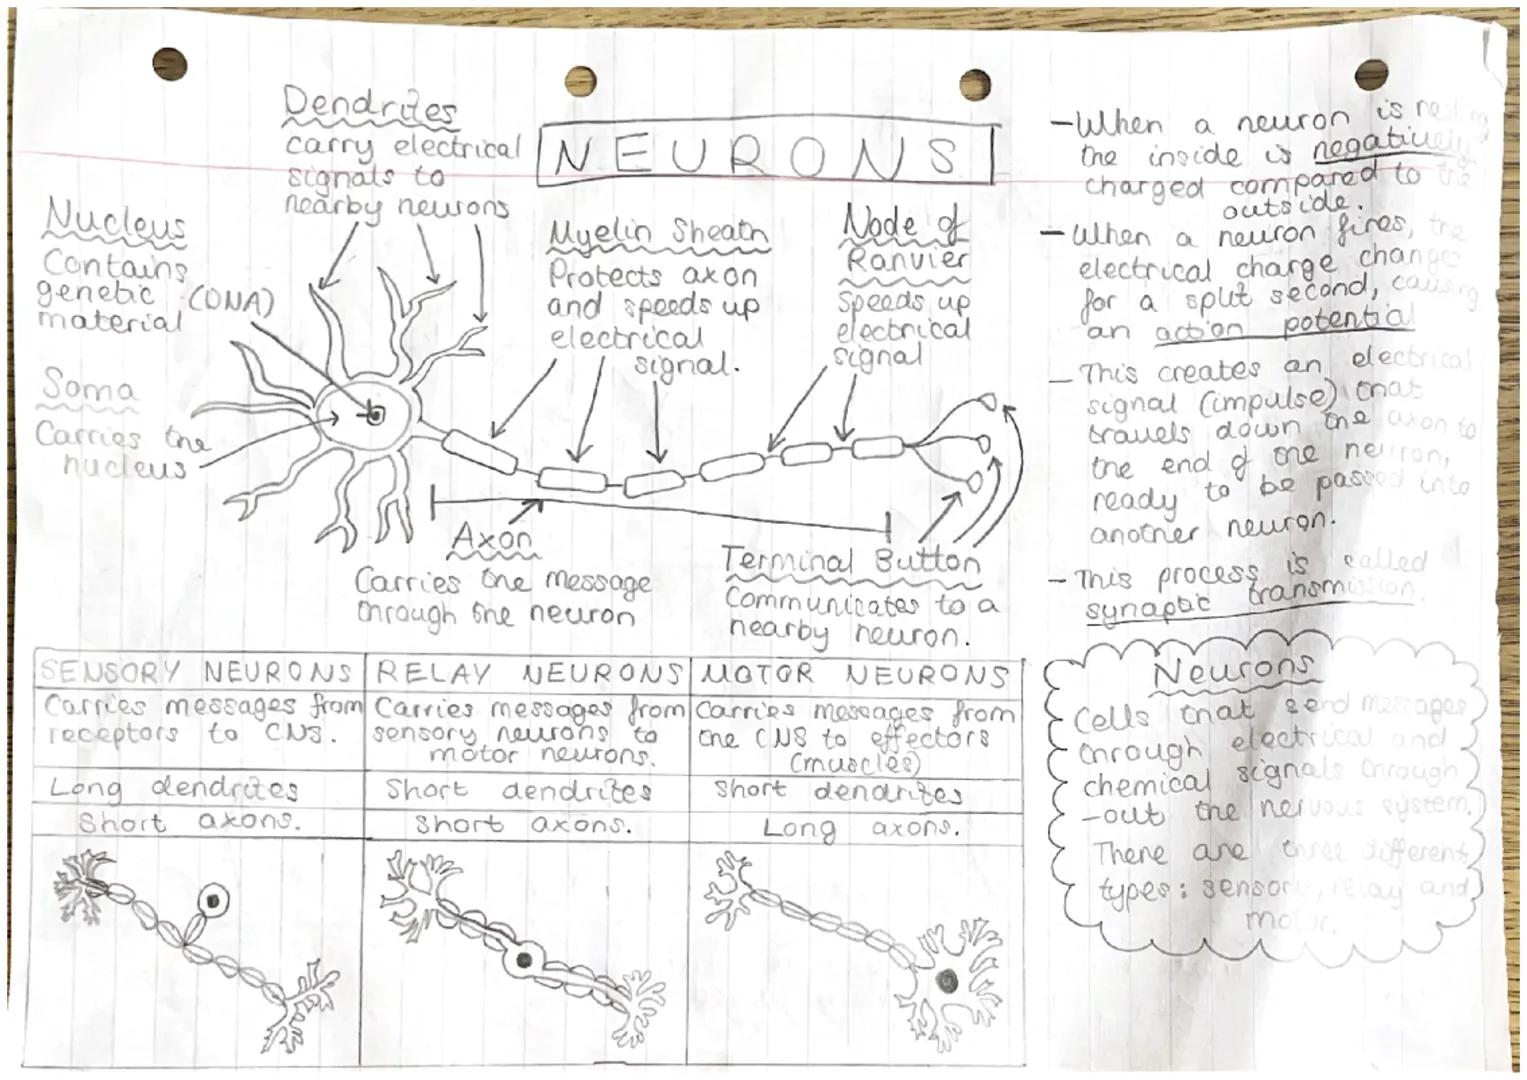 NEURONS
Dendrites
carry electrical
signals to
nearby neurons
Nucleus
Contains
genetic (DNA)
material
Soma
Carries the
nucleus
Myelin Sheath
Protects axon
and speeds up
electrical
signal.
Node of
Ranvier
Speeds up
electrical
signal
Axon
Carries the message
through the neuron
Terminal Button
Communicates to a
nearby neuron.
SENSORY NEURONS
Carries messages from
receptors to CNS.
Long dendrites
Short axons.
RELAY NEURONS
Carries messages from
sensory neurons to
motor neurons.
Short dendrites
Short axons.
MOTOR NEURONS
Carries messages from
the CNS to effectors
(muscles)
Short dendrites
Long axons.
- When a neuron is resting
the inside is negatively
charged compared to the
outside.
- When a neuron fires, the
electrical charge changes
for a split second, causing
an action potential
- This creates an electrical
signal (impulse) that
travels down the axon to
the end of one neuron,
ready to be passed into
another neuron.
- This process is called
synaptic transmission.
Neurons
Cells that send messages
through electrical and
chemical signals through
-out the nervous system.
There are three different
types: sensory, relay and
motor.